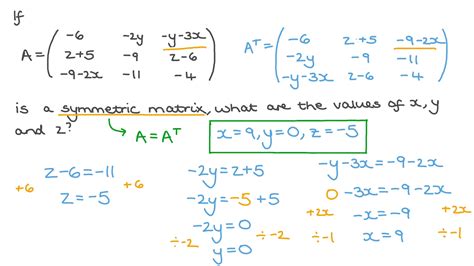 If
A = ( -6 -2y -y-3x
z+5 -9 z-6
-9-2x -11 -4 )
Aᵀ = ( -6 z+5 -9-2x
-2y -9 -11
-y-3x z-6 -4 )
is a symmetric matrix, what are the values of x, y
and z?
A = Aᵀ
x = 9, y = 0, z = -5
z-6 = -11
+6 +6
z = -5
-2y = z+5
-2y = -5+5
-2y = 0
÷-2 ÷-2
y = 0
-y-3x = -9-2x
0 -3x = -9-2x
+2x +2x
-x = -9
÷-1 ÷-1
x = 9